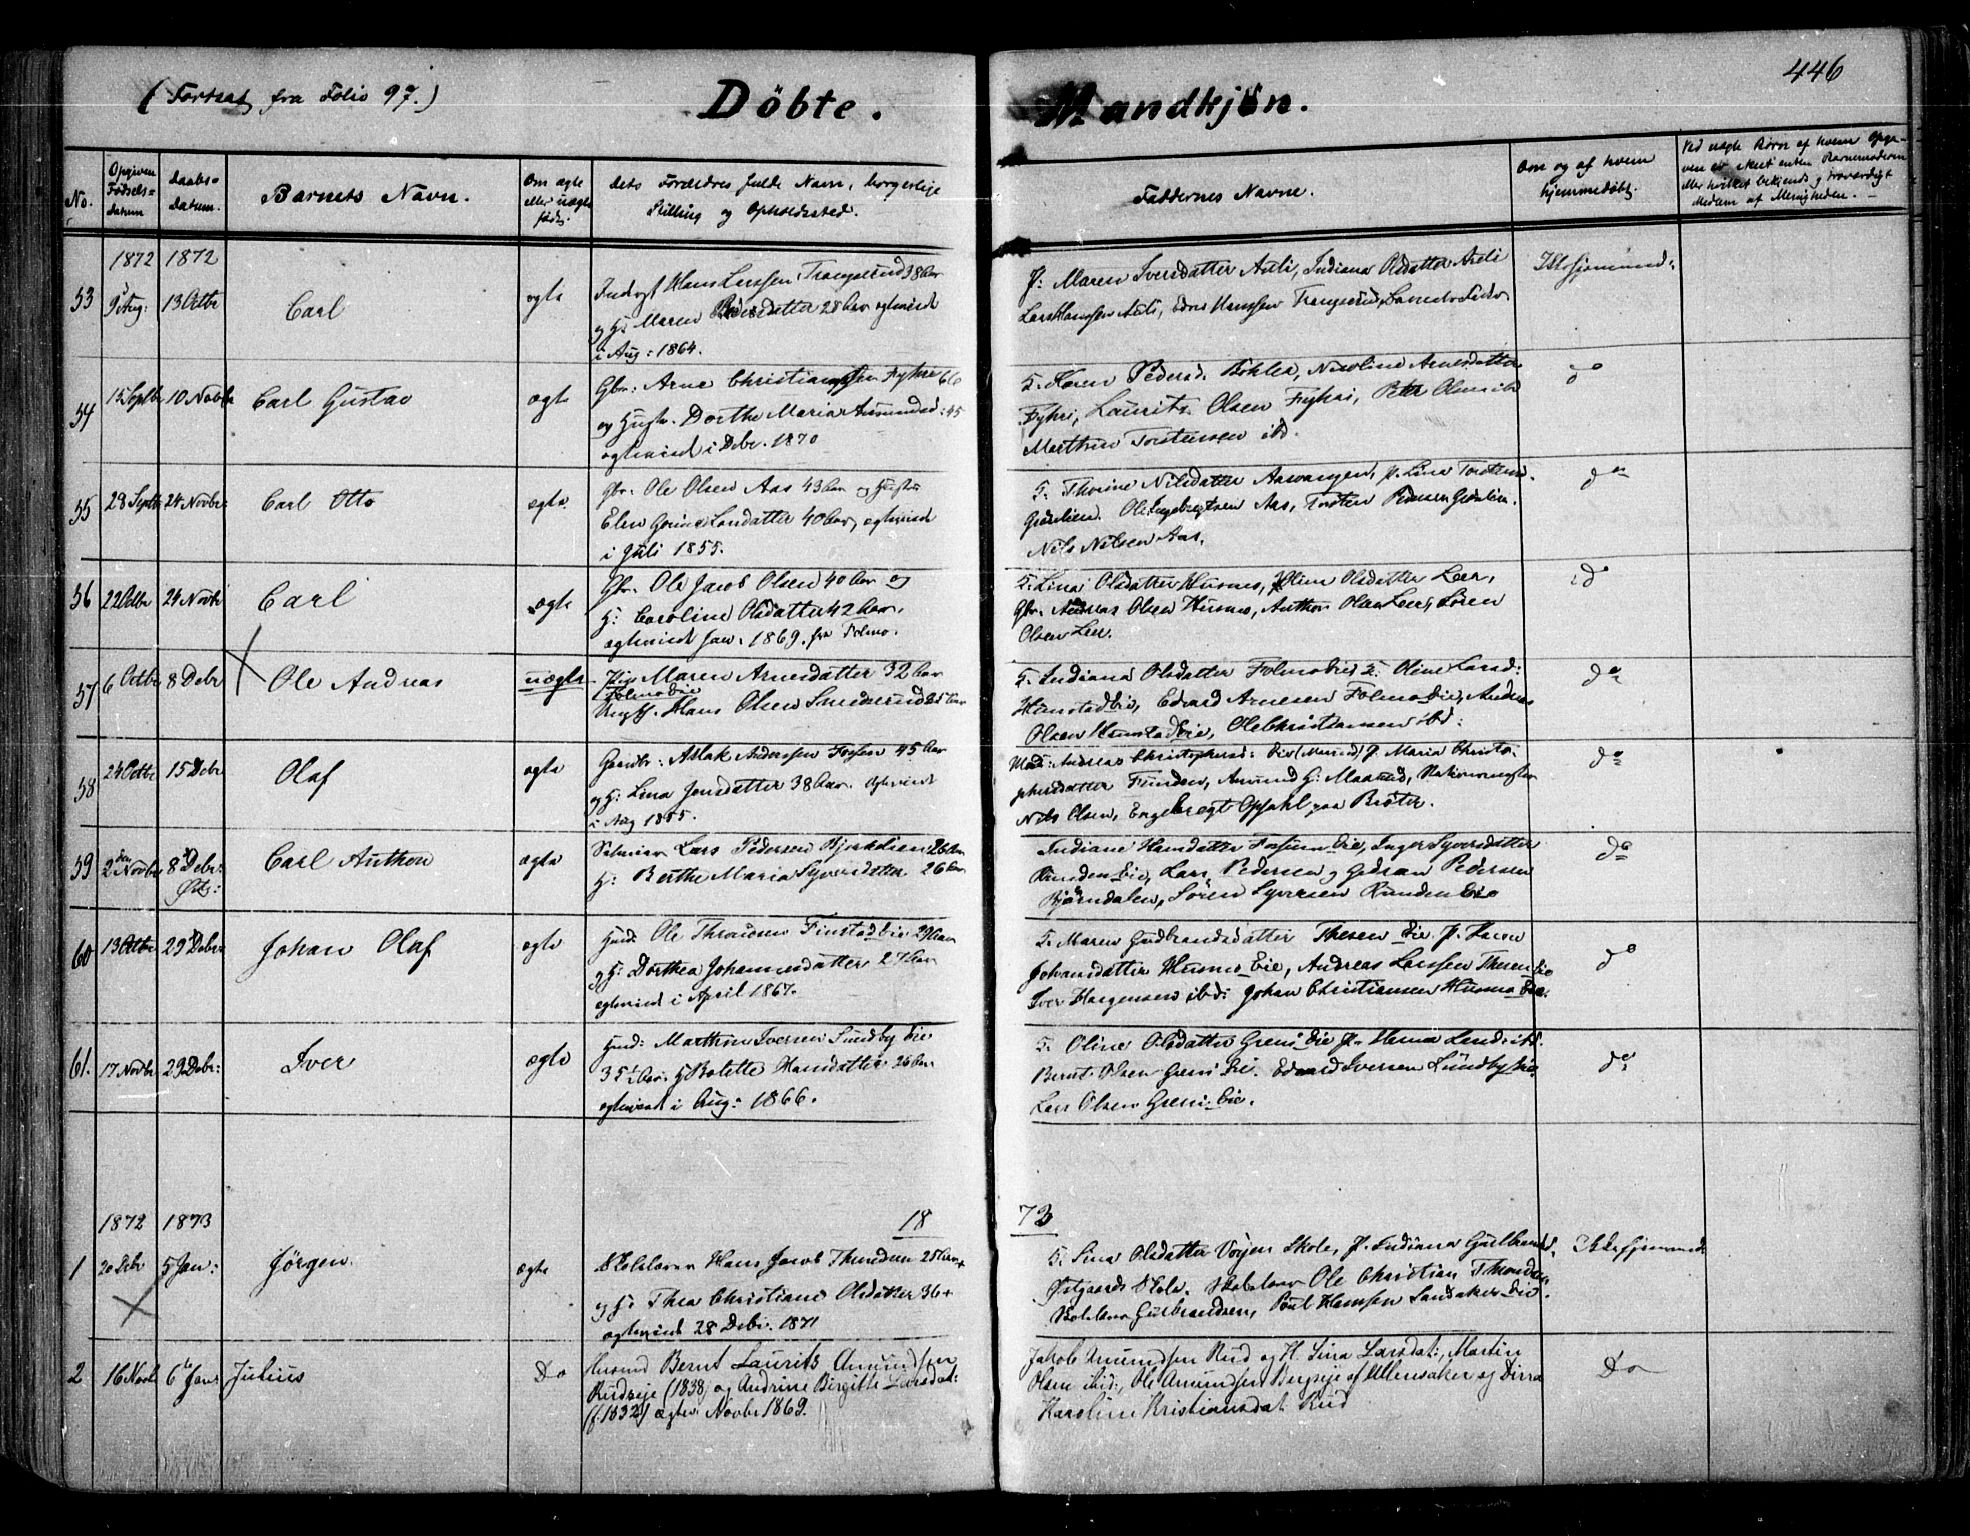 446
(Fortsat fra Folio 97.)
Döbte. Mandkjön.
No.
Opgiven Fødsels-datum
Daabs-datum.
Barnets Navn.
Om ægte eller uægte født.
Dets Forældres fulde Navn, borgerlige
Stilling og Opholdssted.
Faddernes Navne.
Om og af hvem
hjemmedøbt.
Ved uægte Børn af hvem Opgi-
ven er skeet enten Barnemoderen
eller hvilket bekjendt og troværdigt
Medlem af Menigheden.
1872 1872
53 9 Aug: 13 Octbr Carl ægte
Hans Larssen 38 Aar
og H: Maren 28 Aar egteviede
i Aug: 1864.
F: Maren Iversdatter Asli, Indiana Olsdatter Asli
Lars Hanssen Asli, Hanssen
Ikke hjemmed:
54 15 Septbr 10 Novbr Carl Gustav ægte
Gbr: Arne Christiansen Fyhri 66
og Hustr. Dorthe Maria Amundsd: 45
egteviede i Debr. 1870
F. Karen Pedersd. Bøhler, Nicoline Arnesdatter
Fyhri, Laurits Olsen Fyhri, Peter Olsen ibd
Marthin Torstensen ibd.
do
55 28 Septbr 24 Novbr: Carl Otto ægte
Gbr. Ole Olsen Aas 43 Aar og Hustru
Elen 40 Aar, egteviede
i Juli 1855.
F. Thorine Nilsdatter Aasvangen, P. Lina
Ole Ingebregtsen Aas, Torsten Pedersen
Nils Nilsen Aas.
do
56 22 Octbr 24 Novbr Carl ægte
Gbr. Ole Jacob Olsen 40 Aar og
H: Caroline Olsdatter 42 Aar.
egteviede Jan. 1869. fra Folmo.
F. Lina Olsdatter Husmo, Oline Olsdatter Leer,
Gbr. Andreas Olsen Husmo, Anthon Olsen Leer, Søren
Olsen Leer.
do
57 6 Octbr 8 Debr Ole Andreas uægte
Pig. Maren Arnesdatter 32 Aar
Folmoeie
Ungk. Hans Olsen 25 Aar
F. Indiana Olsdatter Folmoeie F. Oline Larsd:
Hunstadeie, Edvard Arnesen Folmoeie, Andreas
Olsen Hunstadeie, Ole Christiansen ibd:
do
58 24 Octbr 15 Debr Olaf ægte
Gaardbr: Aslak Andersen Fossum 45 Aar
og H: Lina Jensdatter 38 Aar. egteviede
i Aug 1855.
Mad: Andreas P. Maria Christo-
phersdatter Funden, Amund G: Maarud, Stationsmester
Nils Olsen, Engebregt Opsahl paa Brøter.
do
59 2den Novbr 8 Debr: Østg: Carl Anthon ægte
Selveier Lars Pedersen Bjerkelien 26 Aar
H: Berthe Maria Syversdatter 26 Aar
Indiane Hansdatter Fossum Eie, Inger Syversdatter
Runden Eie, Lars Pedersen og Gedion Pedersen
Bjørndalen, Søren Syversen Runden Eie
do
60 13 Octbr 29 Debr: Johan Olaf ægte
Husd. Ole Thronsen Finstadeie 29 Aar
og H: Dorthea Johannesdatter 27 Aar
egteviede i April 1867.
F. Maren Gudbrandsdatter Thesen Eie, P. Karen
Johansdatter Husmo Eie, Andreas Larssen Thesen Eie
Iver Hargensen ibd: Johan Christiansen Husmo Eie.
do
61. 17 Novbr 29 Debr: Iver ægte
Husd: Marthin Iversen Sundby Eie
35½ Aar. H Bolette Hansdatter 26 Aar
egteviede i Aug: 1866.
F. Oline Olsdatter Greni Eie P. Lars ibd.
Bernt Olsen Greni Eie. Edvard Iversen Sundby Eie
Lars Olsen Greni Eie.
do
1872 1873
18 73
1 20 Debr 5 Jan: Jørgen. ægte
Skolelærer Hans Jacob Throndsen 25 Aar
og H: Thea Christiane Olsdatter 36
egteviede 28 Debr. 1871
F. Lina Olsdatter Voyen Skole, P. Indiana Gulbrands.
Østgaards Skole. Skolelærer Ole Christian Thronds.
Skolelærer Gulbrandsen, Poul Hansen Sandaker Eie.
Ikke hjemmed:
2 16 Novb 6te Jan: Julius Do
Husmd Bernt Laurits Amundsen
Rudseje (1838) og Andrine Birgitte Larsdat:
(f. 1832) ægtev Novbr 1869.
Jakob Amundsen Rud og H. Lina Larsdat:, Martin
Olsen ibid:, Ole Amundsen Bergseje af Ullensaker og
Karoline Kristiansdat Rud
Do